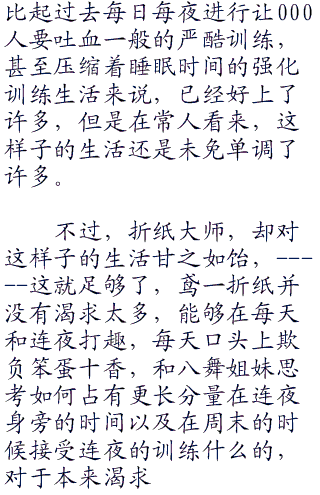 比起过去每日每夜进行让000
人要吐血一般的严酷训练，
甚至压缩着睡眠时间的强化
训练生活来说，已经好上了
许多，但是在常人看来，这
样子的生活还是未免单调了
许多。
不过，折纸大师，却对
这样子的生活甘之如饴，---
--这就足够了，鸢一折纸并
没有渴求太多，能够在每天
和连夜打趣，每天口头上欺
负笨蛋十香，和八舞姐妹思
考如何占有更长分量在连夜
身旁的时间以及在周末的时
候接受连夜的训练什么的，
对于本来渴求